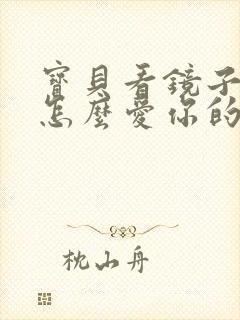 寶貝看鏡子
怎麼愛你的
枕山舟